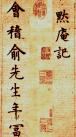 默庵記
會稽俞先生年富